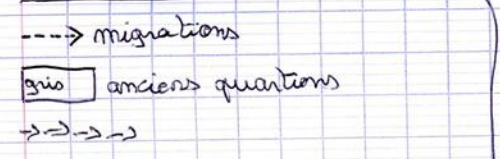 ----> migrations
gris anciens quartiers
→→→→